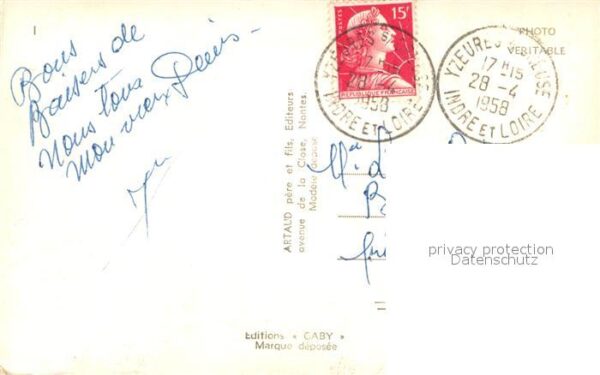 1
Bons
Baisers de
Nous tous
Mon vieux Denis -
15F
POSTES
REPUBLIQUE FRANÇAISE
INDRE ET LOIRE
28 -4
1958
YZEURES S/ CREUSE
17 H 15
28 -4
1958
INDRE ET LOIRE
PHOTO
VÉRITABLE
ARTAUD père et fils, Editeurs
avenue de la Close, Nantes.
Modèle déposé
Mle
privacy protection
Datenschutz
Editions « GABY »
Marque déposée